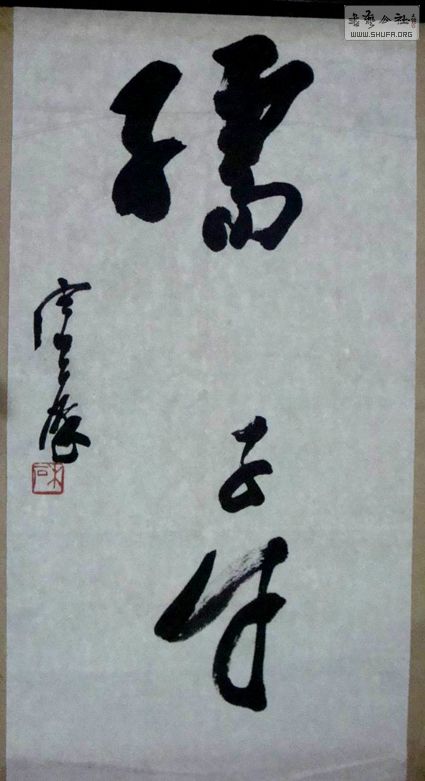 孺子牛
書藝公社
WWW.SHUFA.ORG